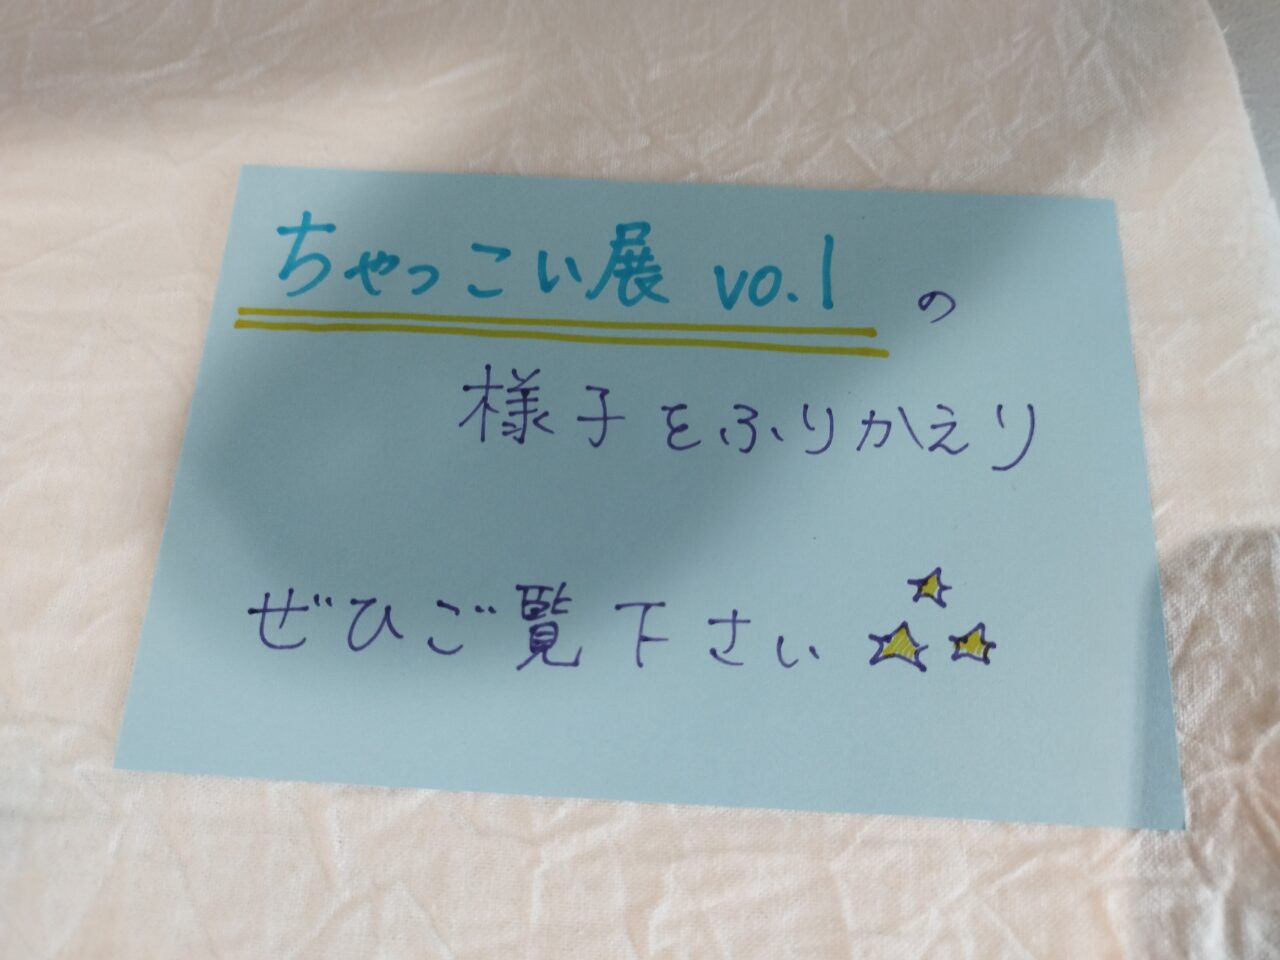 ちゃっこい展 vo.1 の
様子をふりかえり
ぜひご覧下さい